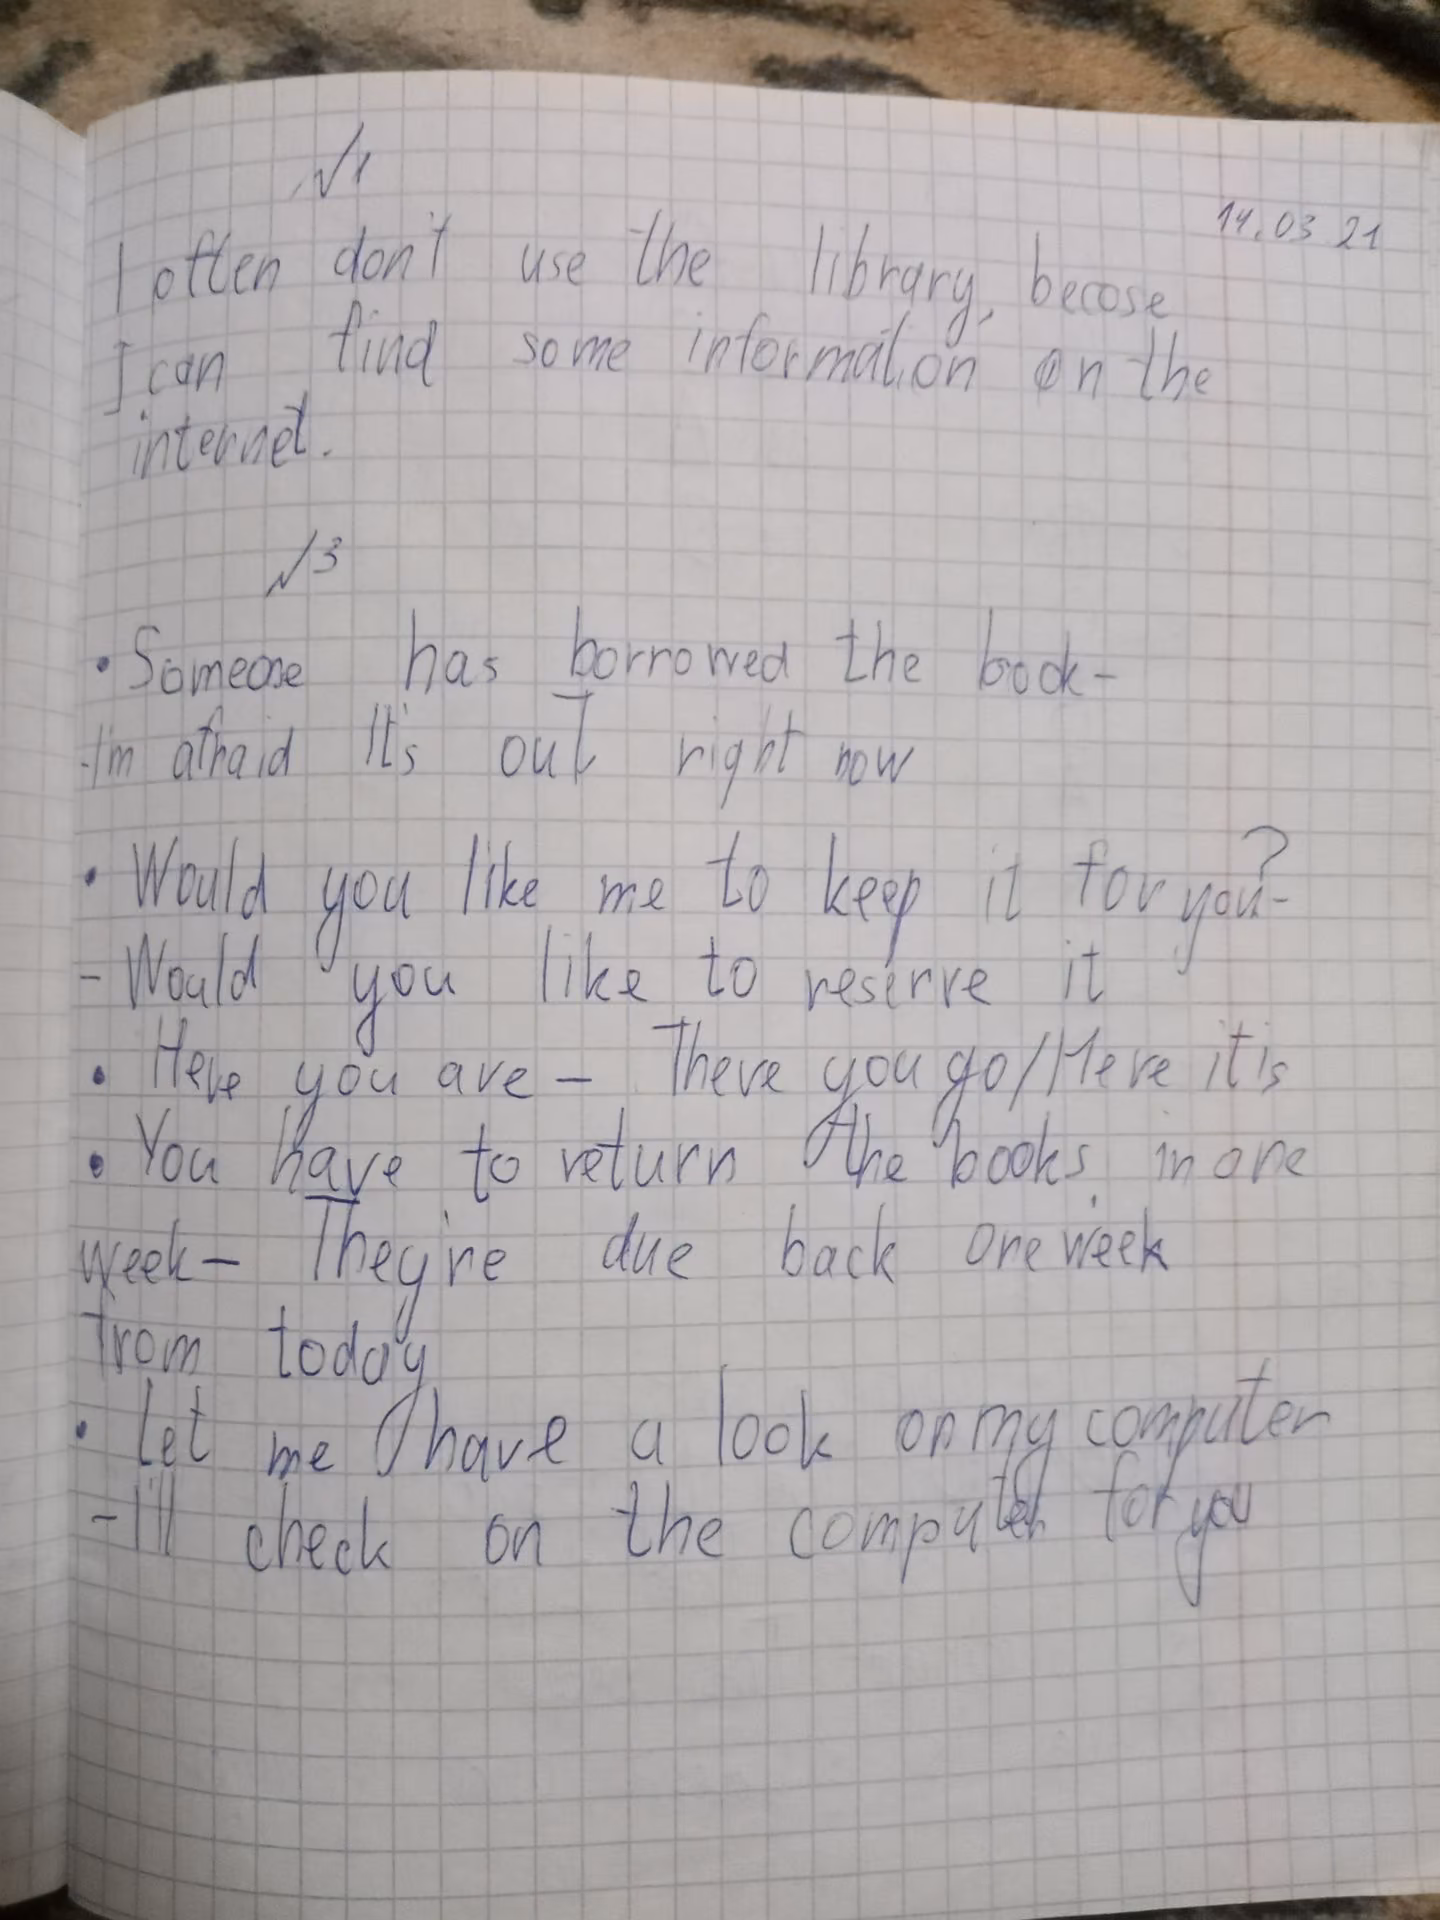 №1
14.03 21
I often don't use the library, becose
I can find some information on the
internet.
№3
• Someone has borrowed the book-
-I'm afraid It's out right now
• Would you like me to keep it for you?-
- Would you like to reserve it
• Here you are - There you go/Here it is
• You have to return the books in one
week- They're due back one week
from today
• Let me have a look on my computer
- I'll check on the computer for you